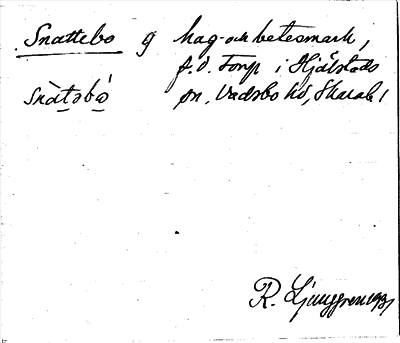 Snattebo g hag- och betesmark,
f.d. Torp i Hjälstads
snàtəbó sn, Vadsbo hd, Skarab l
R. Ljunggren 1931